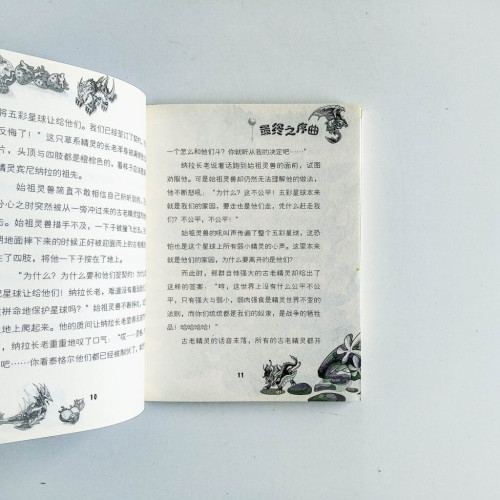 将五彩星球让给他们。我们已经签订了契约,
反悔了!”这只草系精灵的长老浑身
片,头顶与四肢都是橙棕色的。看样子应该
精灵宾尼纳拉的祖先。
始祖灵兽简直不敢相信自己所听到的
分心之时突然被从一旁冲过来的古老精灵
间。始祖灵兽一个不慎,一下子被撞飞出去,
阴地面摔下来的时候正好被迎面而上的古老
了四肢,将他一下子按在了地上。
“为什么?为什么要和他们签契约!
彩星球让给他们!纳拉长老,难道没有
拼命地保护星球吗?”始祖灵兽不断挣扎,
地上爬起来。他的质问让纳拉长老
,纳拉长老重重地叹了口气:“哎……灵兽,
吧……你看泰格尔他们都已经被制伏了,
10
最终之序曲
一个怎么和他们斗?你就听从我的决定吧……”
纳拉长老说着话跑到始祖灵兽的面前,试图
劝服他。可是始祖灵兽却仍然无法理解他的做法,
他不断怒吼:“为什么?这不公平!五彩星球本来
就是我们的家园,要走也是他们走,凭什么赶走我
们?不公平,不公平!”
始祖灵兽的吼叫声传遍了整个五彩星球,这恐
怕也是这个星球上所有弱小精灵的心声。这里本来
就是他们的家园,为什么要离开的是他们?
而此时,那群自恃强大的古老精灵却给出了
这样的答案:“哼,这世界上没有什么公平不公
平,只有强大与弱小,弱肉强食是精灵世界不变的
法则,而你们统统都是我们的奴隶,是战争的牺牲
品!哈哈哈哈!”
古老精灵的话音未落,所有的古老精灵都开
11